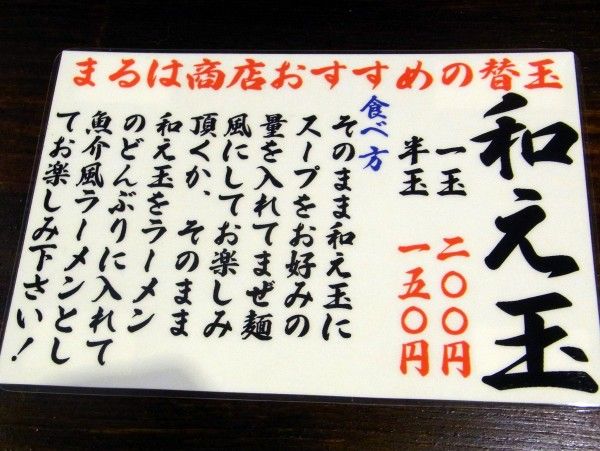 まるは商店おすすめの替玉
和え玉
一玉 二〇〇円
半玉 一五〇円
食べ方
そのまま和え玉に
スープをお好みの
量を入れてまぜ麺
風にしてお楽しみ
頂くか、そのまま
和え玉をラーメン
のどんぶりに入れて
魚介風ラーメンとし
てお楽しみ下さい！